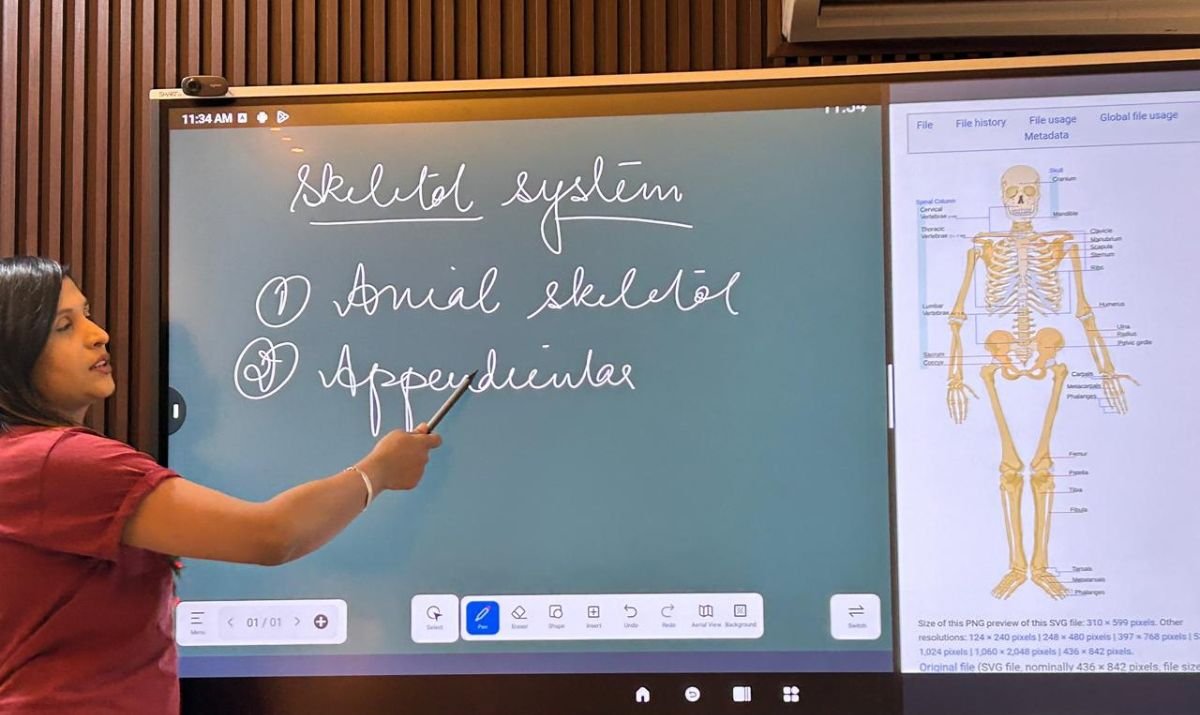 SMART
11:34 AM
11:34
Skeletal system
① Axial skeletal
② Appendicular
Menu
01 / 01
Select
Pen
Eraser
Shape
Insert
Undo
Redo
Aerial View
Background
Switch
File
File history
File usage
Global file usage
Metadata
Skull
Cranium
Mandible
Spinal Column
Cervical
Vertebrae
Thoracic
Vertebrae
Lumbar
Vertebrae
Sacrum
Coccyx
Clavicle
Manubrium
Scapula
Sternum
Ribs
Humerus
Ulna
Radius
Pelvic girdle
Carpals
Metacarpals
Phalanges
Femur
Patella
Tibia
Fibula
Tarsals
Metatarsals
Phalanges
Size of this PNG preview of this SVG file: 310 × 599 pixels. Other
resolutions: 124 × 240 pixels | 248 × 480 pixels | 397 × 768 pixels |
1,024 pixels | 1,060 × 2,048 pixels | 436 × 842 pixels.
Original file (SVG file, nominally 436 × 842 pixels, file size